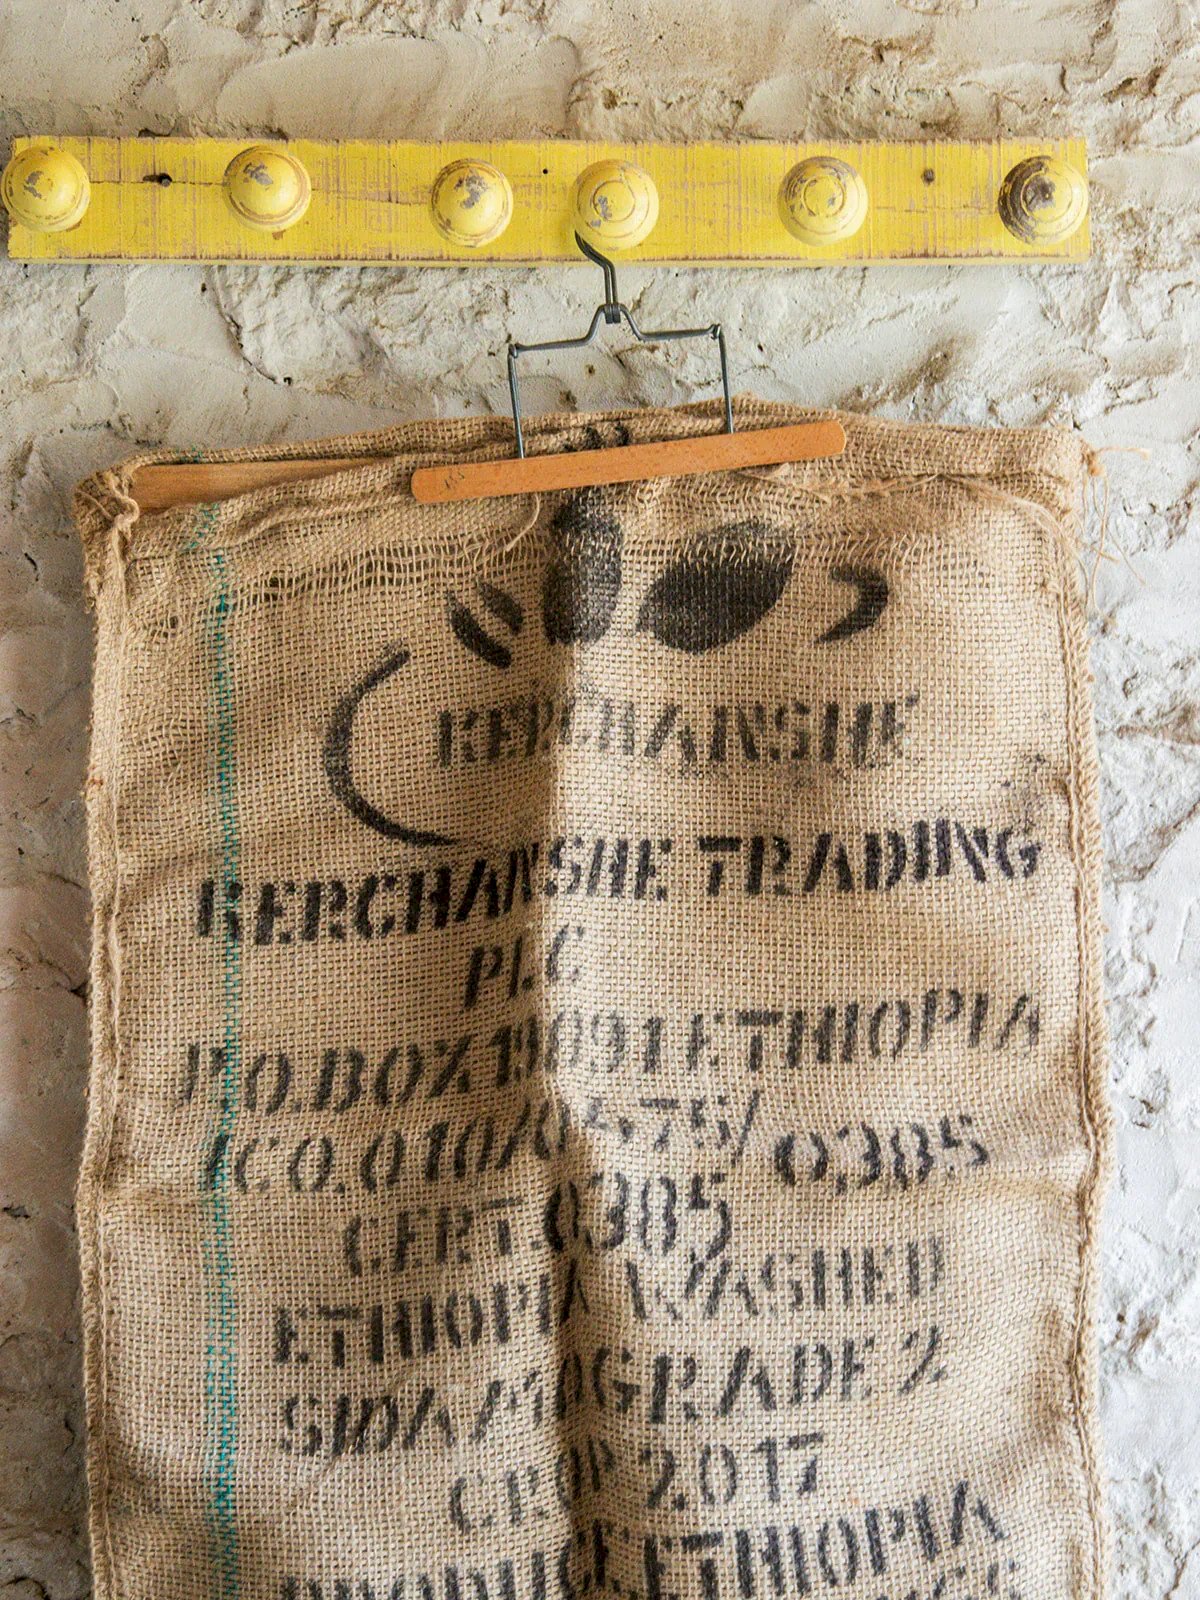 KERCHANSHE
KERCHANSHE TRADING
PLC
P.O.BOX 19091 ETHIOPIA
ICO.010/0575/0385
CERT 0385
ETHIOPIA WASHED
SIDAMO GRADE 2
CROP 2017
PRODUCE ETHIOPIA